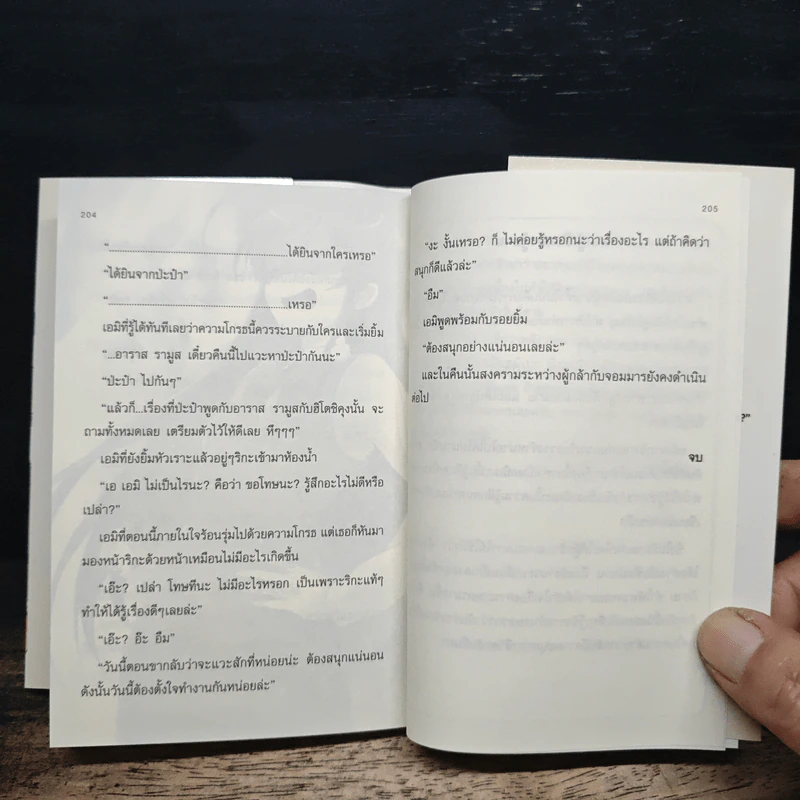 204
“............................................ได้ยินจากใครเหรอ”
“ได้ยินจากปะป๋า”
“............................................เหรอ”
เอมิที่รู้ได้ทันทีเลยว่าความโกรธนี้ควรระบายกับใครและเริ่มยิ้ม
“...อาราส รามูส เดี๋ยวคืนนี้ไปแวะหาปะป๋ากันนะ”
“ปะป๋า ไปกันๆ”
“แล้วก็...เรื่องที่ปะป๋าพูดกับอาราส รามูสกับฮิโตชิคุงนั้น จะ
ถามทั้งหมดเลย เตรียมตัวไว้ให้ดีเลย หึๆๆๆ”
เอมิที่ยังยิ้มหัวเราะแล้วอยู่ๆริกะเข้ามาห้องน้ำ
“เอ เอมิ ไม่เป็นไรนะ? คือว่า ขอโทษนะ? รู้สึกอะไรไม่ดีหรือ
เปล่า?”
เอมิที่ตอนนี้ภายในใจร้อนรุ่มไปด้วยความโกรธ แต่เธอก็หันมา
มองหน้าริกะด้วยหน้าเหมือนไม่มีอะไรเกิดขึ้น
“เอ๊ะ? เปล่า โทษทีนะ ไม่มีอะไรหรอก เป็นเพราะริกะแท้ๆ
ทำให้ได้รู้เรื่องดีๆเลยล่ะ”
“เอ๊ะ? อ๊ะ อืม”
“วันนี้ตอนขากลับว่าจะแวะสักที่หน่อยน่ะ ต้องสนุกแน่นอน
ดังนั้นวันนี้ต้องตั้งใจทำงานกันหน่อยล่ะ”
205
“งะ งั้นเหรอ? ก็ ไม่ค่อยรู้หรอกนะว่าเรื่องอะไร แต่ถ้าคิดว่า
สนุกก็ดีแล้วล่ะ”
“อืม”
เอมิพูดพร้อมกับรอยยิ้ม
“ต้องสนุกอย่างแน่นอนเลยล่ะ”
และในคืนนั้นสงครามระหว่างผู้กล้ากับจอมมารยังคงดำเนิน
ต่อไป
จบ
?”